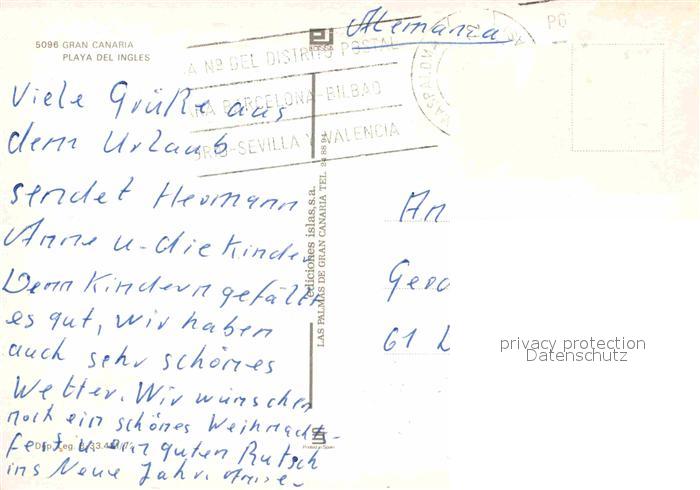 5096 GRAN CANARIA
PLAYA DEL INGLES
Alemania
A Nº DEL DISTRITO POSTAL
BARCELONA-BILBAO
SEVILLA Y VALENCIA
PO
Viele Grüße aus
dem Urlaub
sendet Hermann
Anne u. die Kinder
Denn Kindern gefällt
es gut, wir haben
auch sehr schönes
Wetter. Wir wünschen
noch ein schönes Weihnachts-
fest u. ein guten Rutsch
ins Neue Jahr.
ediciones islas, s.a.
LAS PALMAS DE GRAN CANARIA TEL
An
61
privacy protection
Datenschutz
Printed in Spain